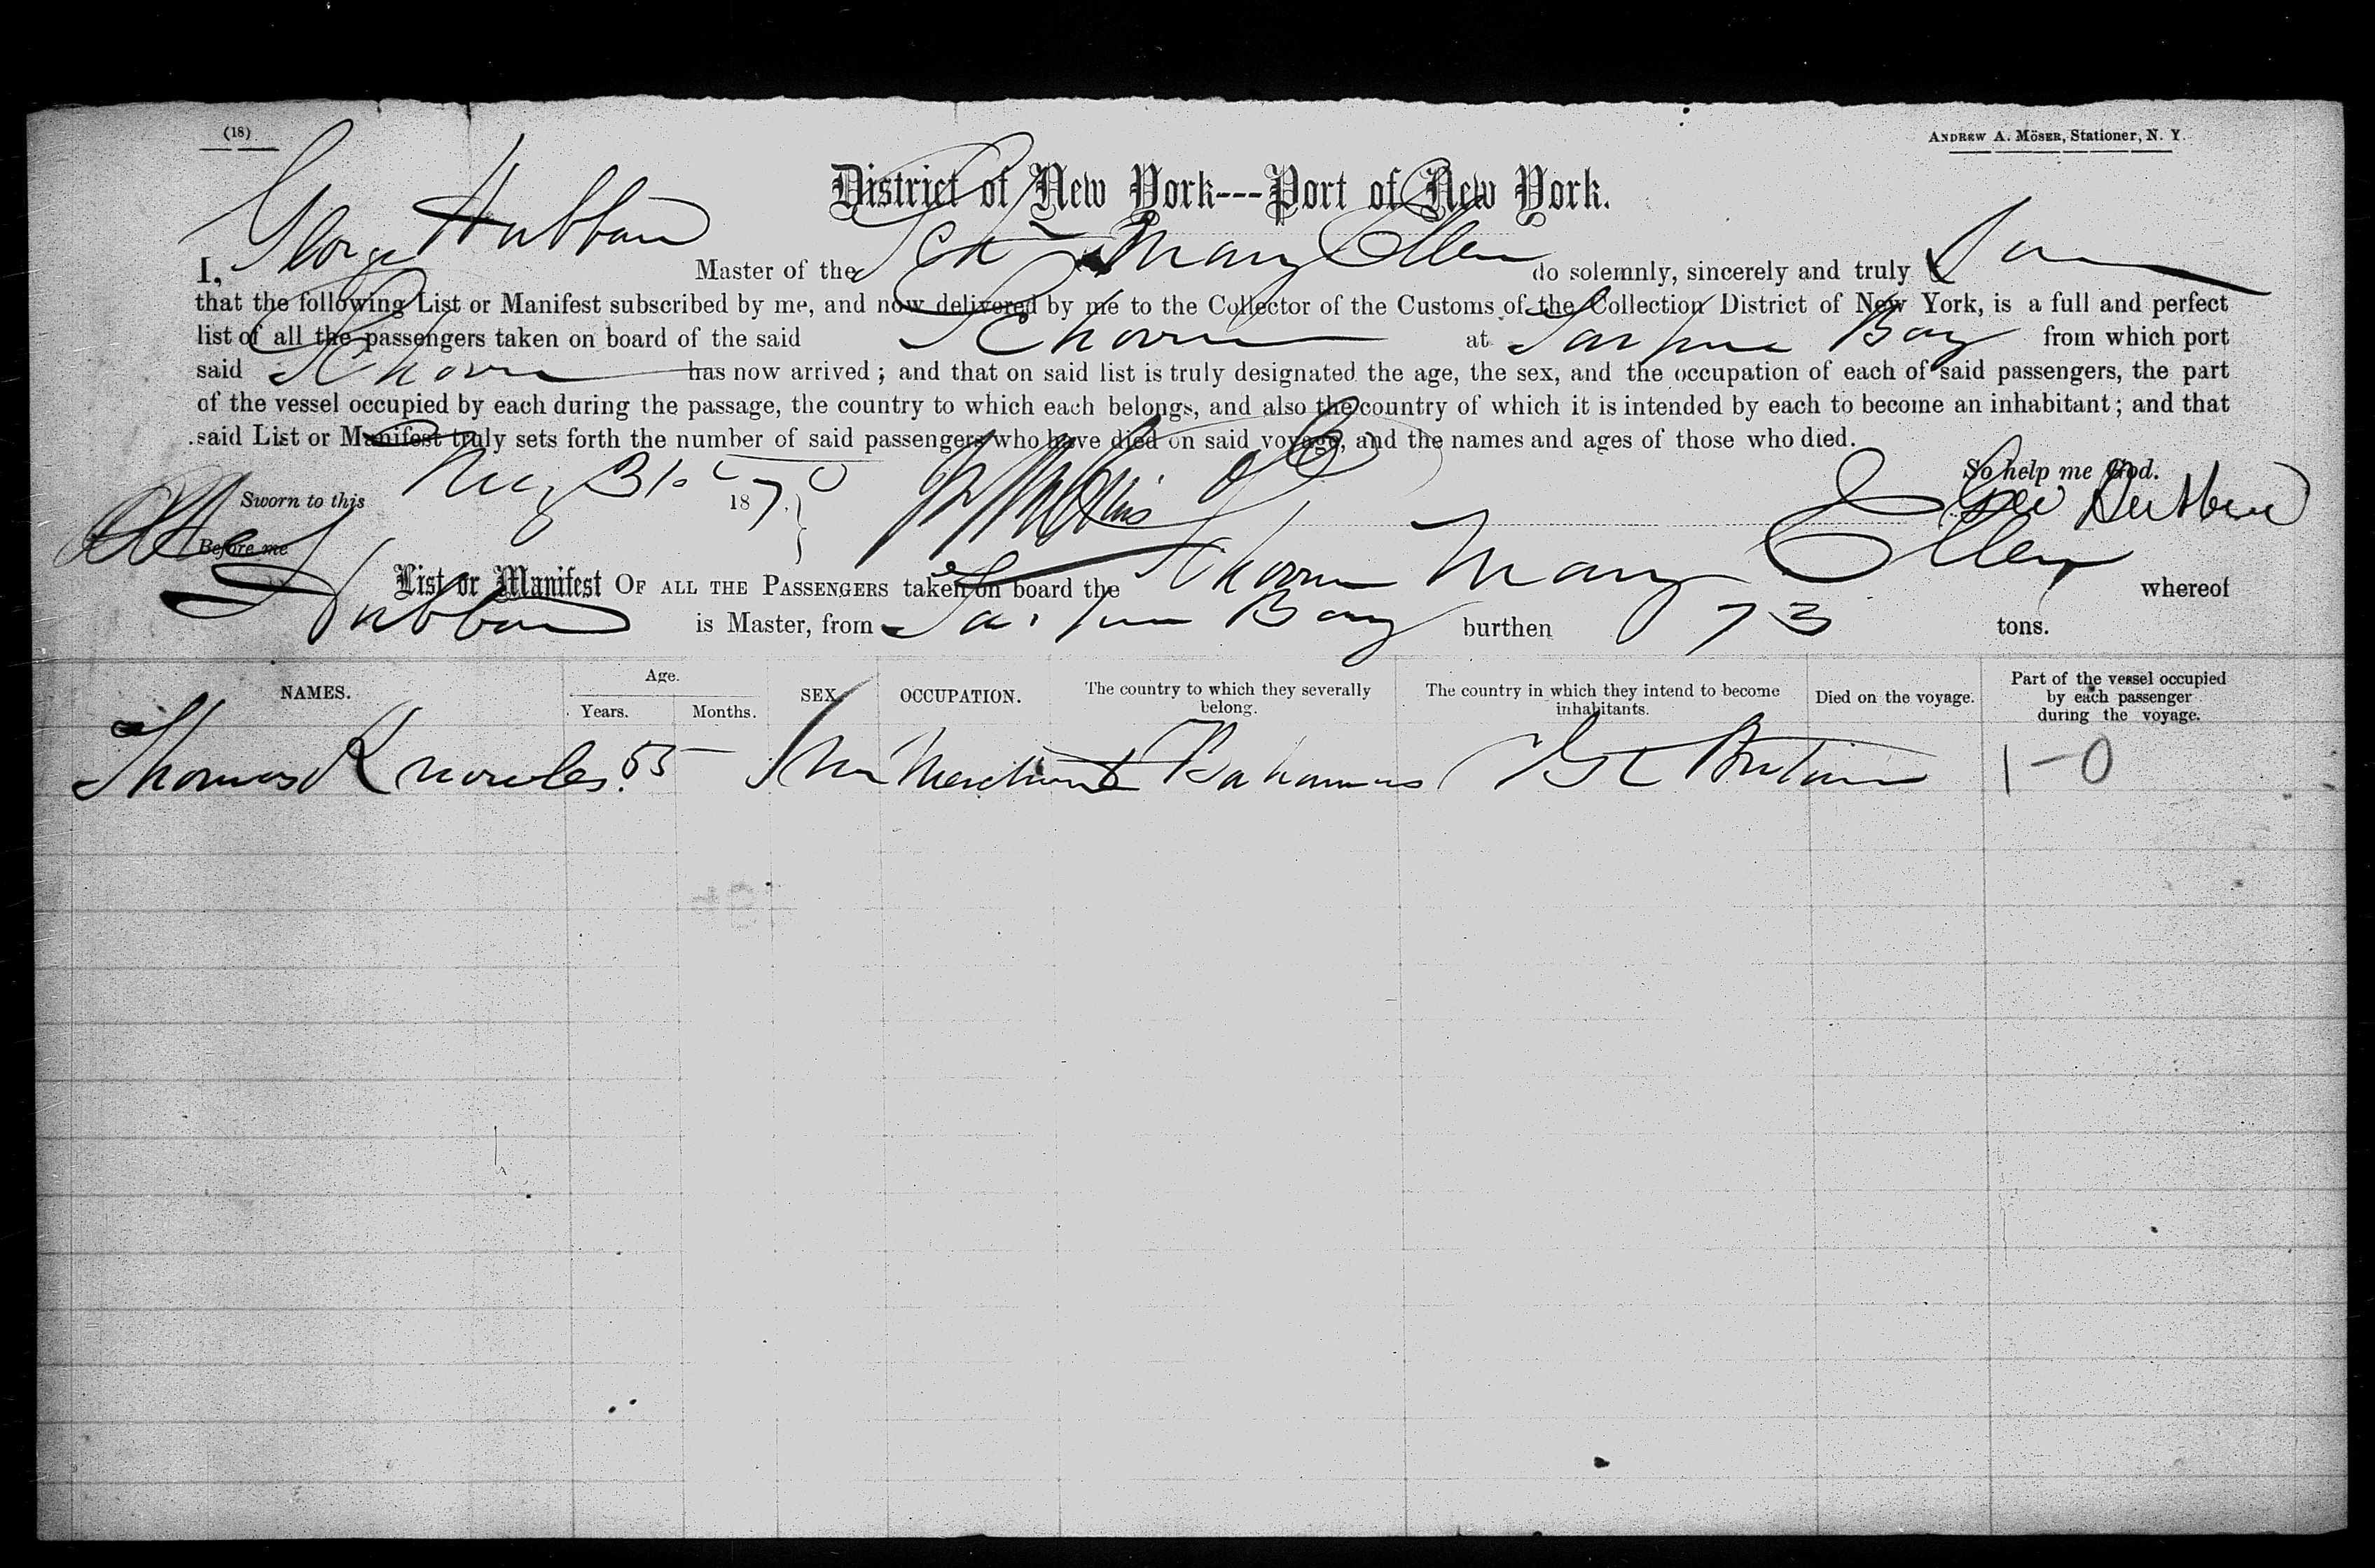 (18)
ANDREW A. MÖSER, Stationer, N. Y.
District of New York---Port of New York.
I, George Hubbard Master of the Schr Mary Ellen do solemnly, sincerely and truly
that the following List or Manifest subscribed by me, and now delivered by me to the Collector of the Customs of the Collection District of New York, is a full and perfect
list of all the passengers taken on board of the said Schooner at Bay from which port
said Schooner has now arrived; and that on said list is truly designated the age, the sex, and the occupation of each of said passengers, the part
of the vessel occupied by each during the passage, the country to which each belongs, and also the country of which it is intended by each to become an inhabitant; and that
said List or Manifest truly sets forth the number of said passengers who have died on said voyage, and the names and ages of those who died.
So help me God.
Sworn to this 31 1870
Before me
List or Manifest OF ALL THE PASSENGERS taken on board the Schooner Mary Ellen whereof
Hubbard is Master, from Bay burthen 73 tons.
NAMES. Age. Years. Months. SEX. OCCUPATION. The country to which they severally belong. The country in which they intend to become inhabitants. Died on the voyage. Part of the vessel occupied by each passenger during the voyage.
Thomas Knowles. 55 Merchant Bahamas Gt Britain 1-0